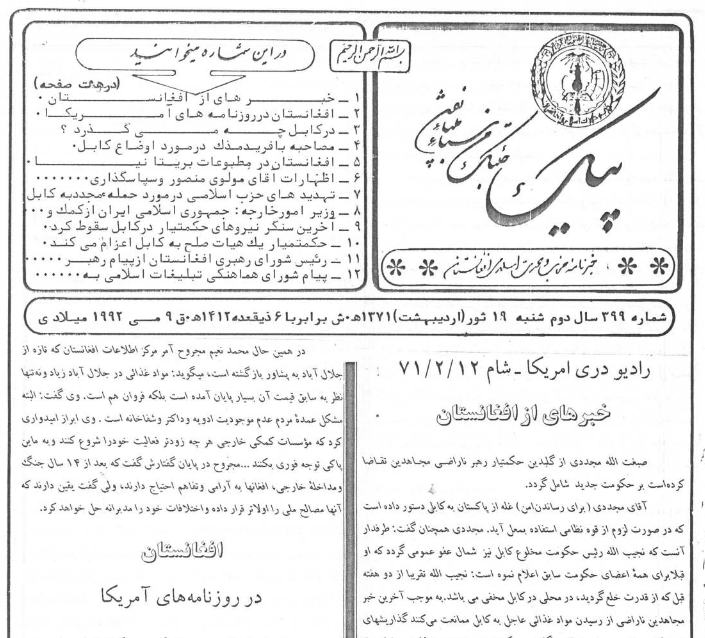 بسم الله الرحمن الرحیم
پیام
خبرنامه حزب وحدت اسلامی افغانستان
در این شماره میخوانید
(درهشت صفحه)
۱ ـ خبرهای از افغانستان ۰
۲ ـ افغانستان درروزنامه های آمریکا ۰
۳ ـ درکابل چه می گذرد ؟
۴ ـ مصاحبه بافریدمذك درمورد اوضاع کابل۰
۵ ـ افغانستان در مطبوعات بریتا نیا ۰
۶ ـ اظهارات آقای مولوی منصور وسپاسگذاری۰۰۰۰۰۰
۷ ـ تهدید های حزب اسلامی درمورد حمله مجددبه کابل
۸ ـ وزیر امورخارجه : جمهوری اسلامی ایران ازکمك و۰۰۰
۹ ـ آخرین سنگر نیروهای حکمتیار درکابل سقوط کرد۰
۱۰ ـ حکمتمیار یك هیات صلح به کابل اعزام می کند۰
۱۱ ـ رئیس شورای رهبری افغانستان ازپیام رهبر۰۰۰۰۰
۱۲ ـ پیام شورای هماهنگی تبلیغات اسلامی به۰۰۰۰۰۰
شماره ۳۹۹ سال دوم شنبه ۱۹ ثور (اردیبهشت)۱۳۷۱ه۰ش برابربا ۶ ذیقعده۱۴۱۲ه۰ق ۹ مــی ۱۹۹۲ میلادی
رادیو دری امریکا ـ شام ۷۱/۲/۱۲
خبرهای از افغانستان
صبغت الله مجددی از گلبدین حکمتیار رهبر ناراضی مجاهدین تقاضا
کرده‌است بر حکومت جدید شامل گردد.
آقای مجددی (برای رساندن امن) غله از پاکستان به کابل دستور داده است
که در صورت لزوم از قوه نظامی استفاده بعمل آید. مجددی همچنان گفت: طرفدار
آنست که نجیب الله رئیس حکومت مخلوع کابل نیز شمال عفو عمومی گردد که او
قبلابرای همهٔ اعضای حکومت سابق اعلام نموه است: نجیب الله تقریبا از دو هفته
قبل که از قدرت خلع گردید، در محلی در کابل مخفی می باشد.به موجب آخرین خبر
مجاهدین ناراضی از رسیدن مواد غذائی عاجل به کابل ممانعت می‌کنند گذاریشهای
در همین حال محمد نعیم مجروح آمر مرکز اطلاعات افغانستان که تازه از
جلال آباد به پشاور بازگشته است، میگوید: مواد غذائی در جلال آباد زیاد ونه‌تنها
نظر به سابق قیمت آن بسیار پایان آمده است بلکه فروان هم است. وی گفت: البته
مشکل عمدهٔ مردم عدم موجودیت ادویه وداکتر وشفاخانه است . وی ابراز امیدواری
کرد که مؤسسات کمکی خارجی هر چه زودتر فعالیت خودرا شروع کنند وبه ماین
پاکی توجه فوری بکنند ...مجروح در پایان گفتارش گفت که بعد از ۱۴ سال جنگ
ومداخلهٔ خارجی، افغانها به آرامی وتفاهم احتیاج دارند، ولی گفت یقین دارند که
آنها مصالح ملی را اولاتر قرار داده واختلافات خود را مدبرانه حل خواهد کرد.
افغانستان
در روزنامه‌های آمریکا